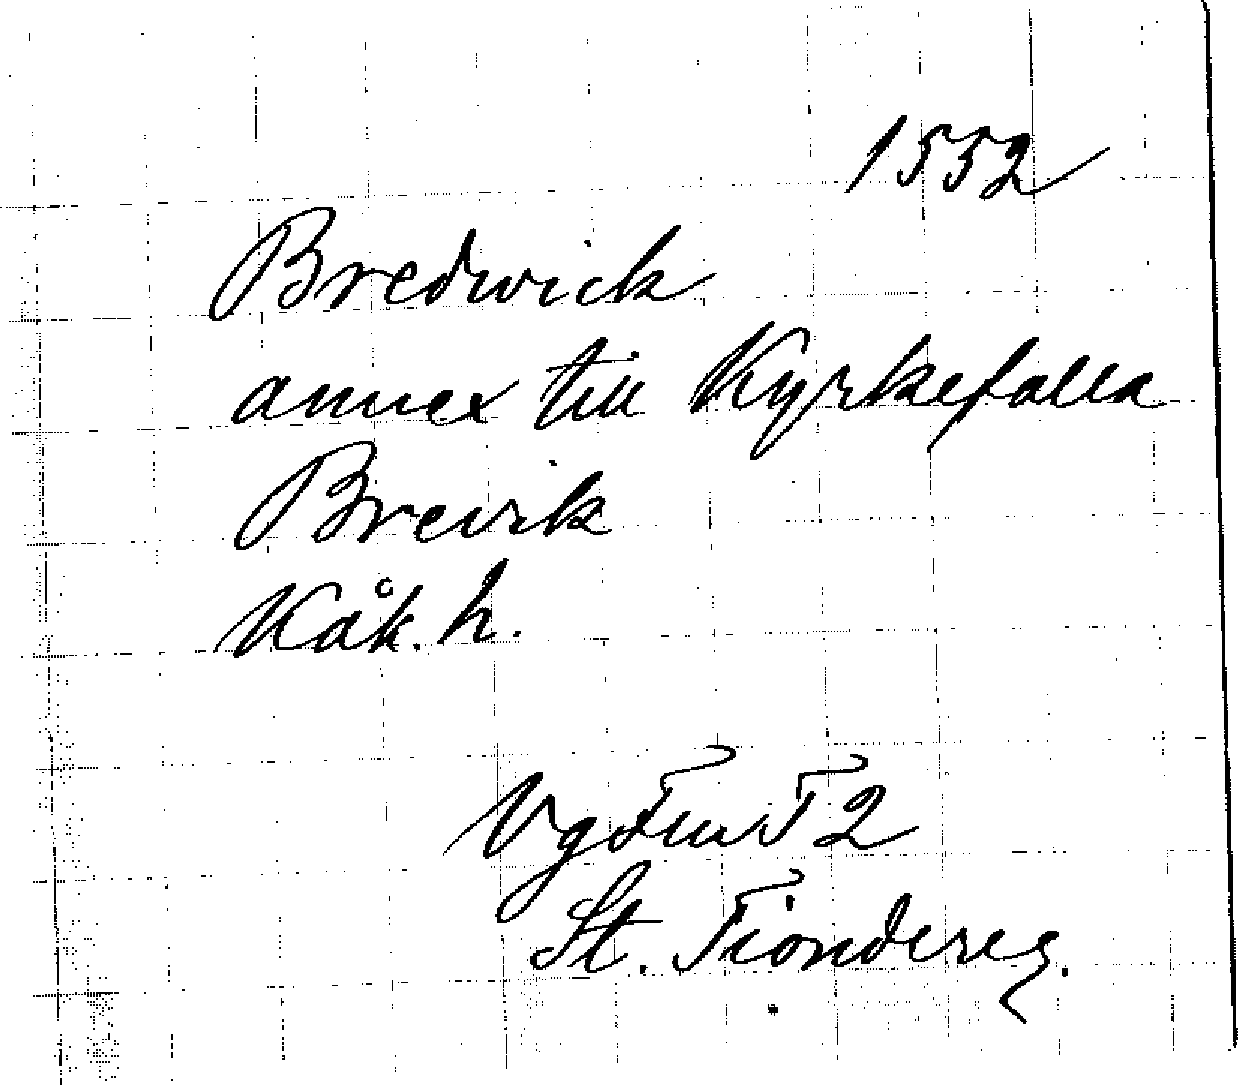 1552
Bredwick
annex till Kyrkefalla
Brevik
Kåk. h.
Vg Tiu T 2
St. Tiondereg.